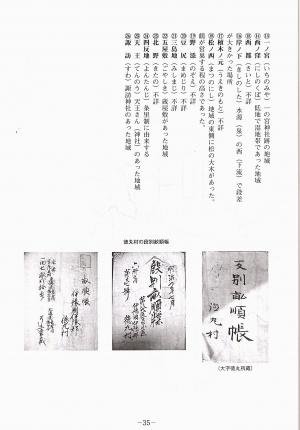 ⑬一ノ宮（いちのみや）一の宮神社跡の地域
⑭西ノ窪（にしのくぼ）低地で湿地帯であった地域
⑮西　部（にしぶ）不詳
⑯岸ノ下（きしのした）水源（泉）の西（下流）で段差
が大きかった場所
⑰植木ノ元（うえきのもと）不詳
⑱松ノ西（まつのにし）地域の東側に松の大木があった。
鶴が営巣する程の高さであった。
⑲野　添（のぞえ）不詳
⑳豆　尻（まめじり）不詳
㉑三島地（みしまじ）不詳
㉒五屋敷（ごやしき）蔵屋敷があった地域
㉓北ノ野（きたのの）不詳
㉔四反地（よんたんじ）条里制に由来する
㉕天　王（てんのう）天王さん（神社）のあった地域
㉖諏　訪（すわ）諏訪神社のあった地域
徳丸村の段別畝順帳
反別畝順帳
徳丸村
段別畝順帳
徳丸村
畝順帳
（大字徳丸所蔵）
―35―